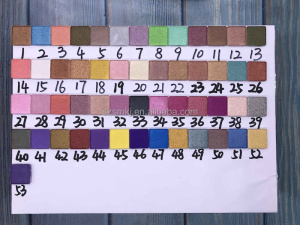 1 2 3 4 5 6 7 8 9 10 11 12 13
14 15 16 17 18 19 20 21 22 23 24 25 26
27 28 29 30 31 32 33 34 35 36 37 38 39
40 41 42 43 44 45 46 47 48 49 50 51 52
53